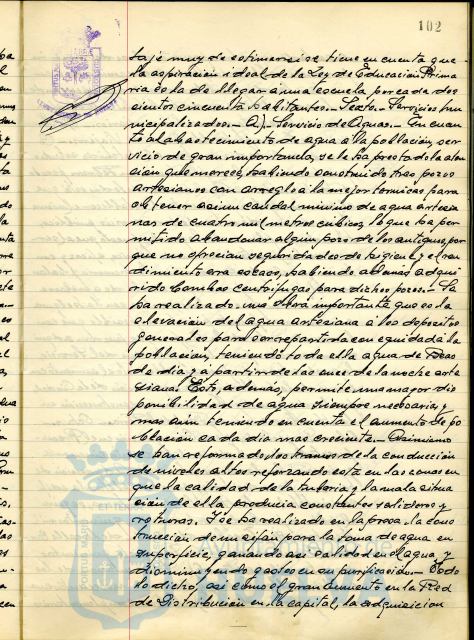 102
taje muy de estimar si se tiene en cuenta que
la aspiracion ideal de la Ley de Educación Prima
ria es la de llegar a una escuela por cada dos
cientos cincuenta habitantes.- Sexto.- Servicios mu
nicipalizados.- A).- Servicio de Aguas.- En cuan
to al abastecimiento de agua a la población, ser
vicio de gran importancia, se le ha prestado la aten
ción que merece, habiendo construido tres pozos
artesianos con arreglo a la mejor tecnica para
obtener asi un caudal minimo de agua artesia
nas de cuatro mil metros cúbicos, lo que ha per
mitido abandonar algun pozo de los antiguos, por
que no ofrecian seguridades de higiene y el ren
dimiento era escaso, habiendo ademas adqui
rido bombas centrifugas para dichos pozos.- Se
ha realizado una obra importante que es la
elevación del agua artesiana a los depositos
generales para ser repartida con equidad a la
población, teniendo toda ella agua de
de dia y a partir de las once de la noche arte
siana. Esto, ademas, permite una mayor dis
ponibilidad de agua siempre necesaria y
mas aun teniendo en cuenta el aumento de po
blación cada dia mas creciente.- Asimismo
se han reformado los tramos de la conducción
de niveles altos reforzando esta en las zonas en
que la calidad de la tuberia y la mala situa
ción de ella producia constantes salideros y
roturas. Y se ha realizado en la presa la cons
trucción de un sifón para la toma de agua en
superficie, ganando asi calidad en el agua, y
disminuyendo gastos en su purificación.- Todo
lo dicho, asi como el gran aumento en la Red
de Distribución en la capital, la adquisicion